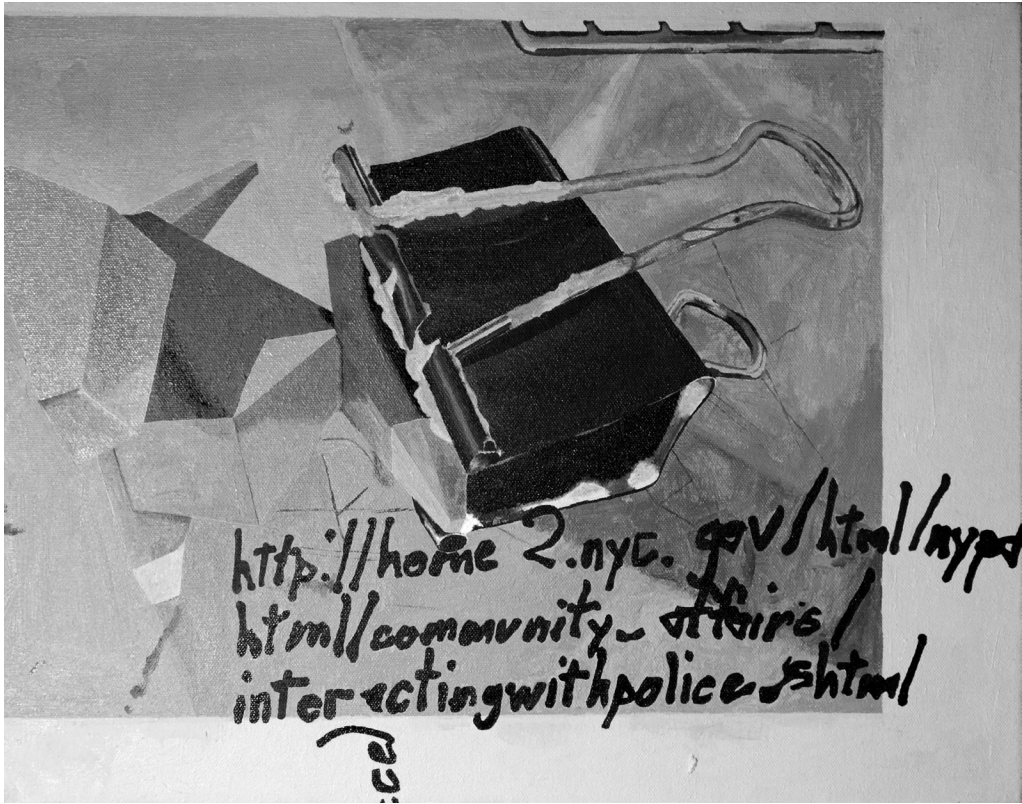 http://home2.nyc.gov/html/nypd
html/community_affairs/
interactingwithpolice.shtml